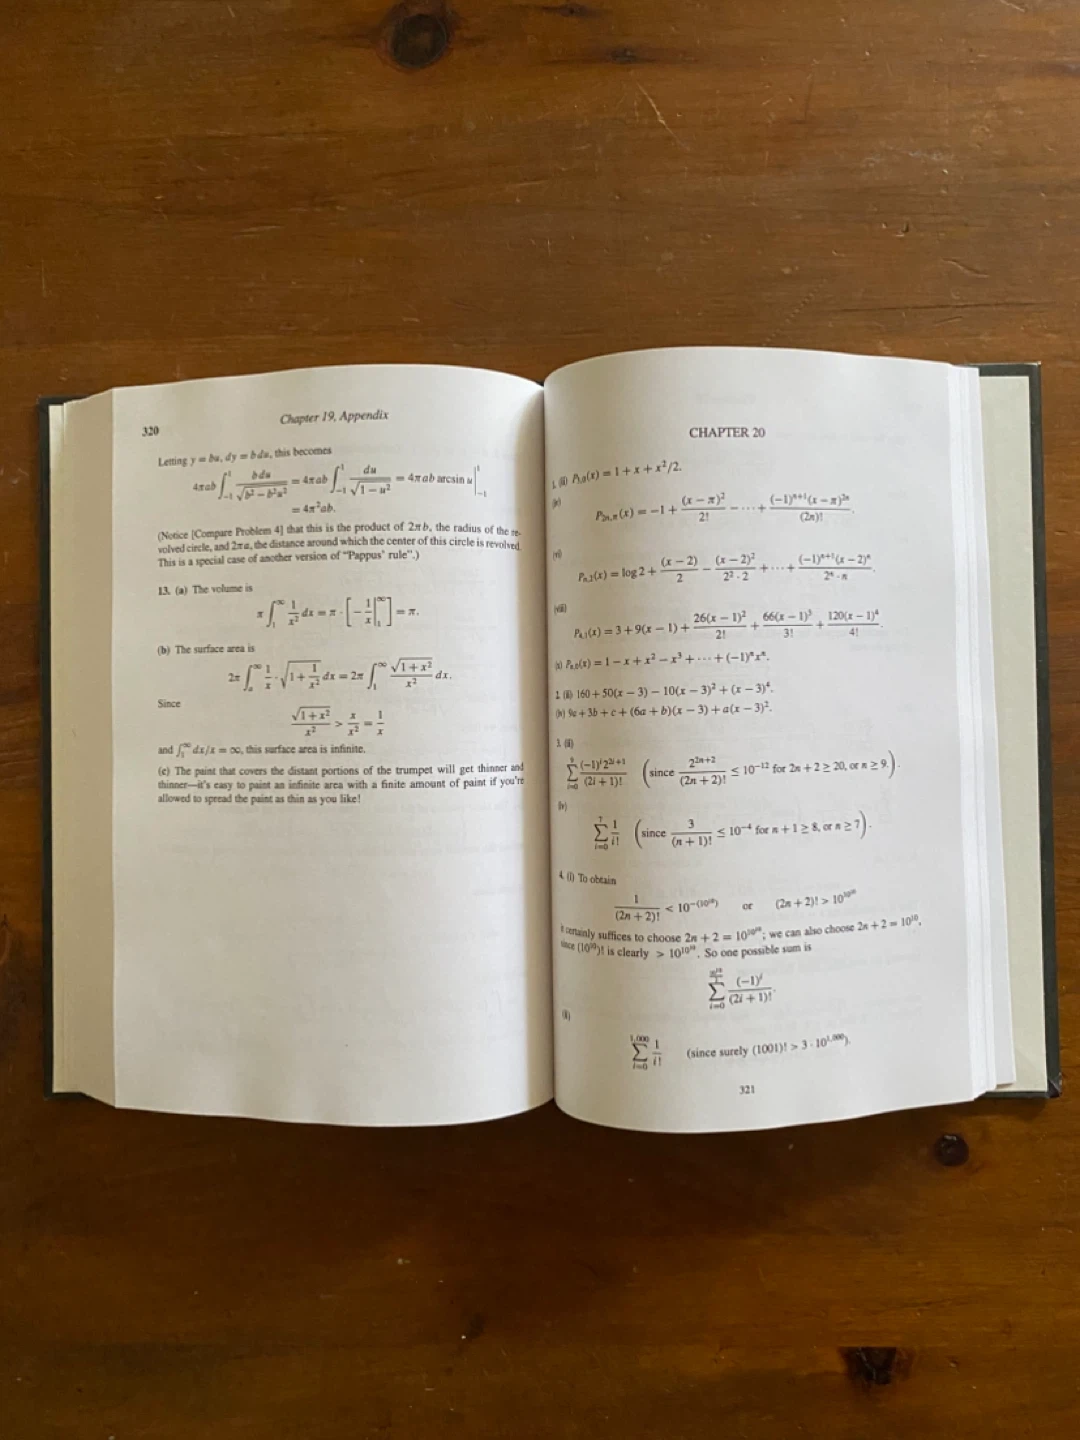 320
Chapter 19, Appendix
Letting y = bu, dy = b du, this becomes
4πab ∫_{-1}^{1} b du / √(b² − b²u²) = 4πab ∫_{-1}^{1} du / √(1 − u²) = 4πab arcsin u |_{-1}^{1}
= 4π²ab.
(Notice [Compare Problem 4] that this is the product of 2πb, the radius of the re-
volved circle, and 2πa, the distance around which the center of this circle is revolved.
This is a special case of another version of "Pappus' rule".)
13. (a) The volume is
π ∫_{1}^{∞} 1/x² dx = π · [−1/x |_{1}^{∞}] = π.
(b) The surface area is
2π ∫_{a}^{∞} 1/x · √(1 + 1/x²) dx = 2π ∫_{1}^{∞} √(1 + x²)/x² dx.
Since
√(1 + x²)/x² > x/x² = 1/x
and ∫_{1}^{∞} dx/x = ∞, this surface area is infinite.
(c) The paint that covers the distant portions of the trumpet will get thinner and
thinner—it's easy to paint an infinite area with a finite amount of paint if you're
allowed to spread the paint as thin as you like!
CHAPTER 20
1. (ii) (x) = 1 + x + x²/2.
P_{2n,π}(x) = −1 + (x − π)²/2! − ⋯ + (−1)^{n+1}(x − π)^{2n}/(2n)!
(vi)
P_{n,2}(x) = log 2 + (x − 2)/2 − (x − 2)²/2² · 2 + ⋯ + (−1)^{n+1}(x − 2)^n/2^n · n.
(viii)
P_{4,1}(x) = 3 + 9(x − 1) + 26(x − 1)²/2! + 66(x − 1)³/3! + 120(x − 1)⁴/4!.
(x) (x) = 1 − x + x² − x³ + ⋯ + (−1)^n x^n.
2. (ii) 160 + 50(x − 3) − 10(x − 3)² + (x − 3)⁴.
(iv) 9a + 3b + c + (6a + b)(x − 3) + a(x − 3)².
3. (ii)
∑_{i=0}^{9} (−1)^i 2^{2i+1}/(2i + 1)! (since 2^{2n+2}/(2n + 2)! ≤ 10^{−12} for 2n + 2 ≥ 20, or n ≥ 9.).
(iv)
∑_{i=0}^{7} 1/i! (since 3/(n + 1)! ≤ 10^{−4} for n + 1 ≥ 8, or n ≥ 7).
4. (i) To obtain
1/(2n + 2)! < 10^{−(10^{10})} or (2n + 2)! > 10^{10^{10}}
it certainly suffices to choose 2n + 2 = 10^{10^{10}}; we can also choose 2n + 2 = 10^{10},
since (10^{10})! is clearly > 10^{10^{10}}. So one possible sum is
∑_{i=0} (−1)^i/(2i + 1)!.
(ii)
∑_{i=0}^{1,000} 1/i! (since surely (1001)! > 3 · 10^{1,000}).
321